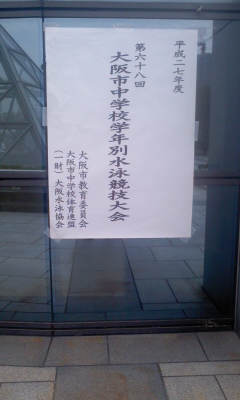 平成二七年度
第六十八回
大阪市中学校学年別水泳競技大会
大阪市教育委員会
大阪市中学校体育連盟
(一財)大阪水泳協会